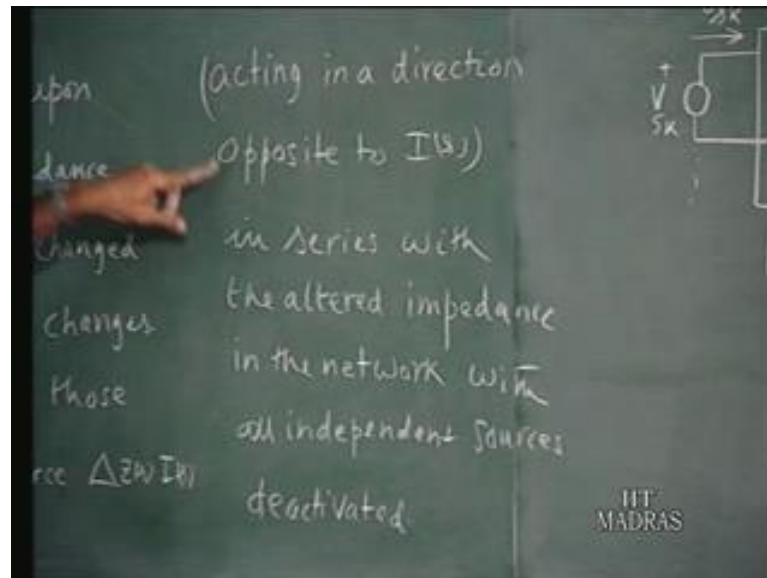 upon
dance
changed
changes
those
rce ΔZ(s) I(s)
(acting in a direction
opposite to I(s))
in series with
the altered impedance
in the network with
all independent sources
deactivated
+
V
5k
IIT
MADRAS